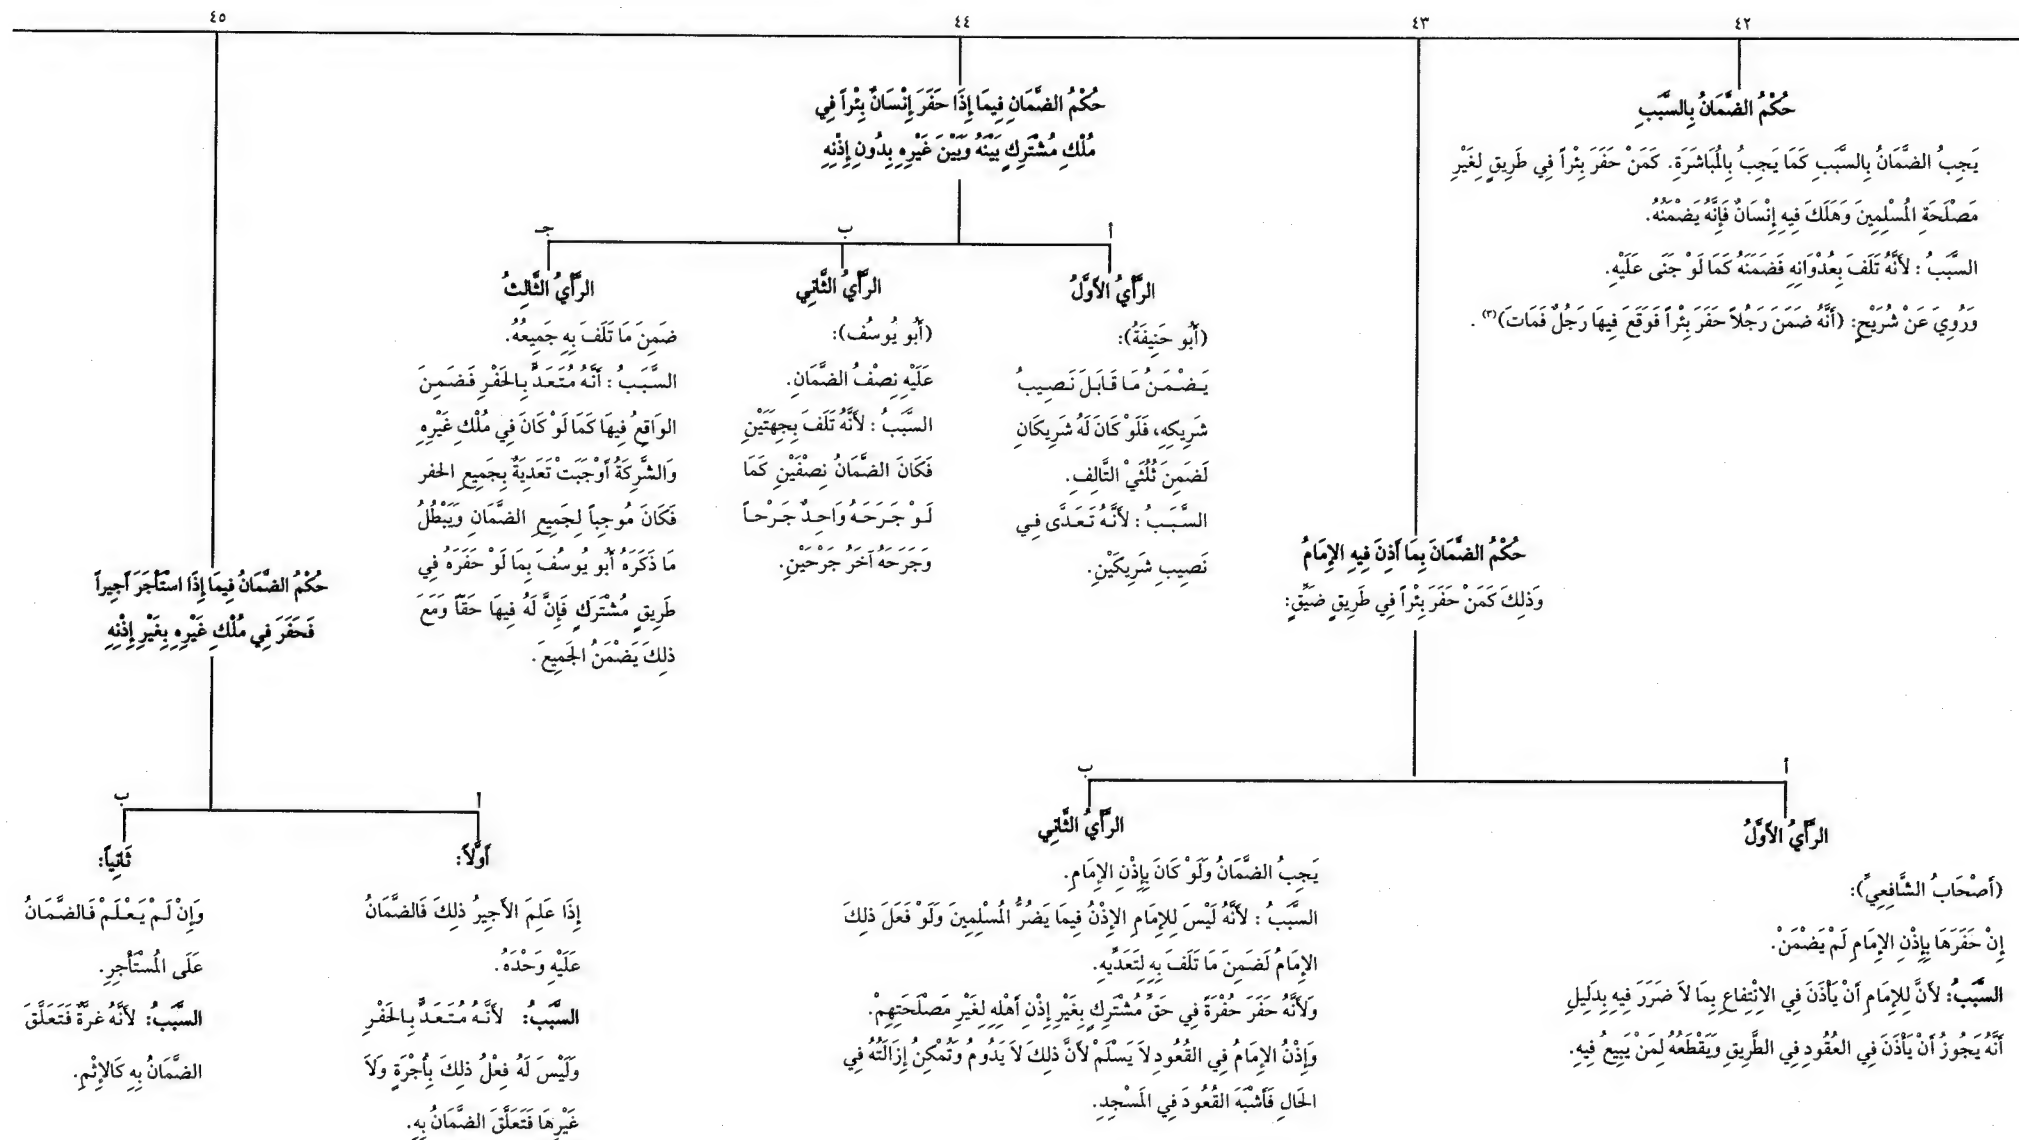 ٤٢
حُكْمُ الضَّمَانُ بِالسَّبَبِ
يَجِبُ الضَّمَانُ بِالسَّبَبِ كَمَا يَجِبُ بِالْمُبَاشَرَةِ. كَمَنْ حَفَرَ بِئْراً فِي طَرِيقٍ لِغَيْرِ
مَصْلَحَةِ الْمُسْلِمِينَ وَهَلَكَ فِيهِ إِنْسَانٌ فَإِنَّهُ يَضْمَنُهُ.
السَّبَبُ : لأَنَّهُ تَلَفَ بِعُدْوَانِهِ فَضَمَنَهُ كَمَا لَوْ جَنَى عَلَيْهِ.
وَرُوِيَ عَنْ شُرَيْحٍ: (أَنَّهُ ضَمَنَ رَجُلاً حَفَرَ بِئْراً فَوَقَعَ فِيهَا رَجُلٌ فَمَاتَ)(٣) .
٤٣
حُكْمُ الضَّمَانَ بِمَا أَذِنَ فِيهِ الإِمَامُ
وَذلِكَ كَمَنْ حَفَرَ بِئْراً فِي طَرِيقٍ ضَيِّقٍ:
أ
الرَّأْيُ الأَوَّلُ
(أَصْحَابُ الشَّافِعِيِّ):
إِنْ حَفَرَهَا بِإِذْنِ الإِمَامِ لَمْ يَضْمَنْ.
السَّبَبُ: لأَنَّ لِلإِمَامِ أَنْ يَأْذَنَ فِي الاِنْتِفاعِ بِمَا لاَ ضَرَرَ فِيهِ بِدَلِيلِ
أَنَّهُ يَجُوزُ أَنْ يَأْذَنَ فِي العُقُودِ فِي الطَّرِيقِ وَيَقْطَعُهُ لِمَنْ يَبِيعُ فِيهِ.
ب
الرَّأْيُ الثَّانِي
يَجِبُ الضَّمَانُ وَلَوْ كَانَ بِإِذْنِ الإِمَامِ.
السَّبَبُ : لأَنَّهُ لَيْسَ لِلإِمَامِ الإِذْنُ فِيمَا يَضُرُّ الْمُسْلِمِينَ وَلَوْ فَعَلَ ذلِكَ
الإِمَامُ لَضَمِنَ مَا تَلَفَ بِهِ لِتَعَدِّيهِ.
وَلأَنَّهُ حَفَرَ حُفْرَةً فِي حَقٍّ مُشْتَرِكٍ بِغَيْرِ إِذْنِ أَهْلِهِ لِغَيْرِ مَصْلَحَتِهِمْ.
وَإِذْنُ الإِمَامُ فِي القُعُودِ لاَ يَسْلَمْ لأَنَّ ذلِكَ لاَ يَدُومُ وَتُمْكِنُ إِزَالَتُهُ فِي
الحَالِ فَأَشْبَهَ القُعُودَ فِي المَسْجِدِ.
٤٤
حُكْمُ الضَّمَانِ فِيمَا إِذَا حَفَرَ إِنْسَانٌ بِئْراً فِي
مُلْكِ مُشْتَرِكٍ بَيْنَهُ وَبَيْنَ غَيْرِهِ بِدُونِ إِذْنِهِ
أ
الرَّأْيُ الأَوَّلُ
(أَبُو حَنِيفَةُ):
يَضْمَنُ مَا قَابَلَ نَصِيبُ
شَرِيكِهِ، فَلَوْ كَانَ لَهُ شَرِيكَانِ
لَضَمِنَ ثُلُثَيْ التَّالِفِ.
السَّبَبُ : لأَنَّهُ تَعَدَّى فِي
نَصِيبِ شَرِيكَيْنِ.
ب
الرَّأْيُ الثَّانِي
(أَبُو يُوسُف):
عَلَيْهِ نِصْفُ الضَّمَانِ.
السَّبَبُ : لأَنَّهُ تَلَفَ بِجِهَتَيْنِ
فَكَانَ الضَّمَانُ نِصْفَيْنِ كَمَا
لَوْ جَرَحَهُ وَاحِدٌ جَرْحاً
وَجَرَحَهُ آخَرُ جَرْحَيْنِ.
جـ
الرَّأْيُ الثَّالِثُ
ضَمِنَ مَا تَلَفَ بِهِ جَمِيعُهُ.
السَّبَبُ : أَنَّهُ مُتَعَدٍّ بِالحَفْرِ فَضَمِنَ
الوَاقِعُ فِيهَا كَمَا لَوْ كَانَ فِي مُلْكِ غَيْرِهِ
وَالشَّرِكَةُ أَوْجَبَتْ تَعَدِيَةٌ بِجَمِيعِ الحفر
فَكَانَ مُوجِباً لِجَمِيعِ الضَّمَانِ وَيَبْطُلُ
مَا ذَكَرَهُ أَبُو يُوسُفَ بِمَا لَوْ حَفَرَهُ فِي
طَرِيقٍ مُشْتَرَكٍ فَإِنَّ لَهُ فِيهَا حَقّاً وَمَعَ
ذلِكَ يَضْمَنُ الجَمِيعَ .
٤٥
حُكْمُ الضَّمَانُ فِيمَا إِذَا اسْتَأْجَرَ أَجِيراً
فَحَفَرَ فِي مُلْكِ غَيْرِهِ بِغَيْرِ إِذْنِهِ
أ
أَوَّلاً:
إِذَا عَلِمَ الأَجِيرُ ذلِكَ فَالضَّمَانُ
عَلَيْهِ وَحْدَهُ.
السَّبَبُ: لأَنَّهُ مُتَعَدٍّ بِالحَفْرِ
وَلَيْسَ لَهُ فِعْلُ ذلِكَ بِأُجْرَةٍ وَلاَ
غَيْرِهَا فَتَعَلَّقَ الضَّمَانُ بِهِ.
ب
ثَانِياً:
وَإِنْ لَمْ يَعْلَمْ فَالضَّمَانُ
عَلَى الْمُسْتَأْجِرِ.
السَّبَبُ: لأَنَّهُ غرَّهٌ فَتَعَلَّقَ
الضَّمَانُ بِهِ كَالإِثْمِ.